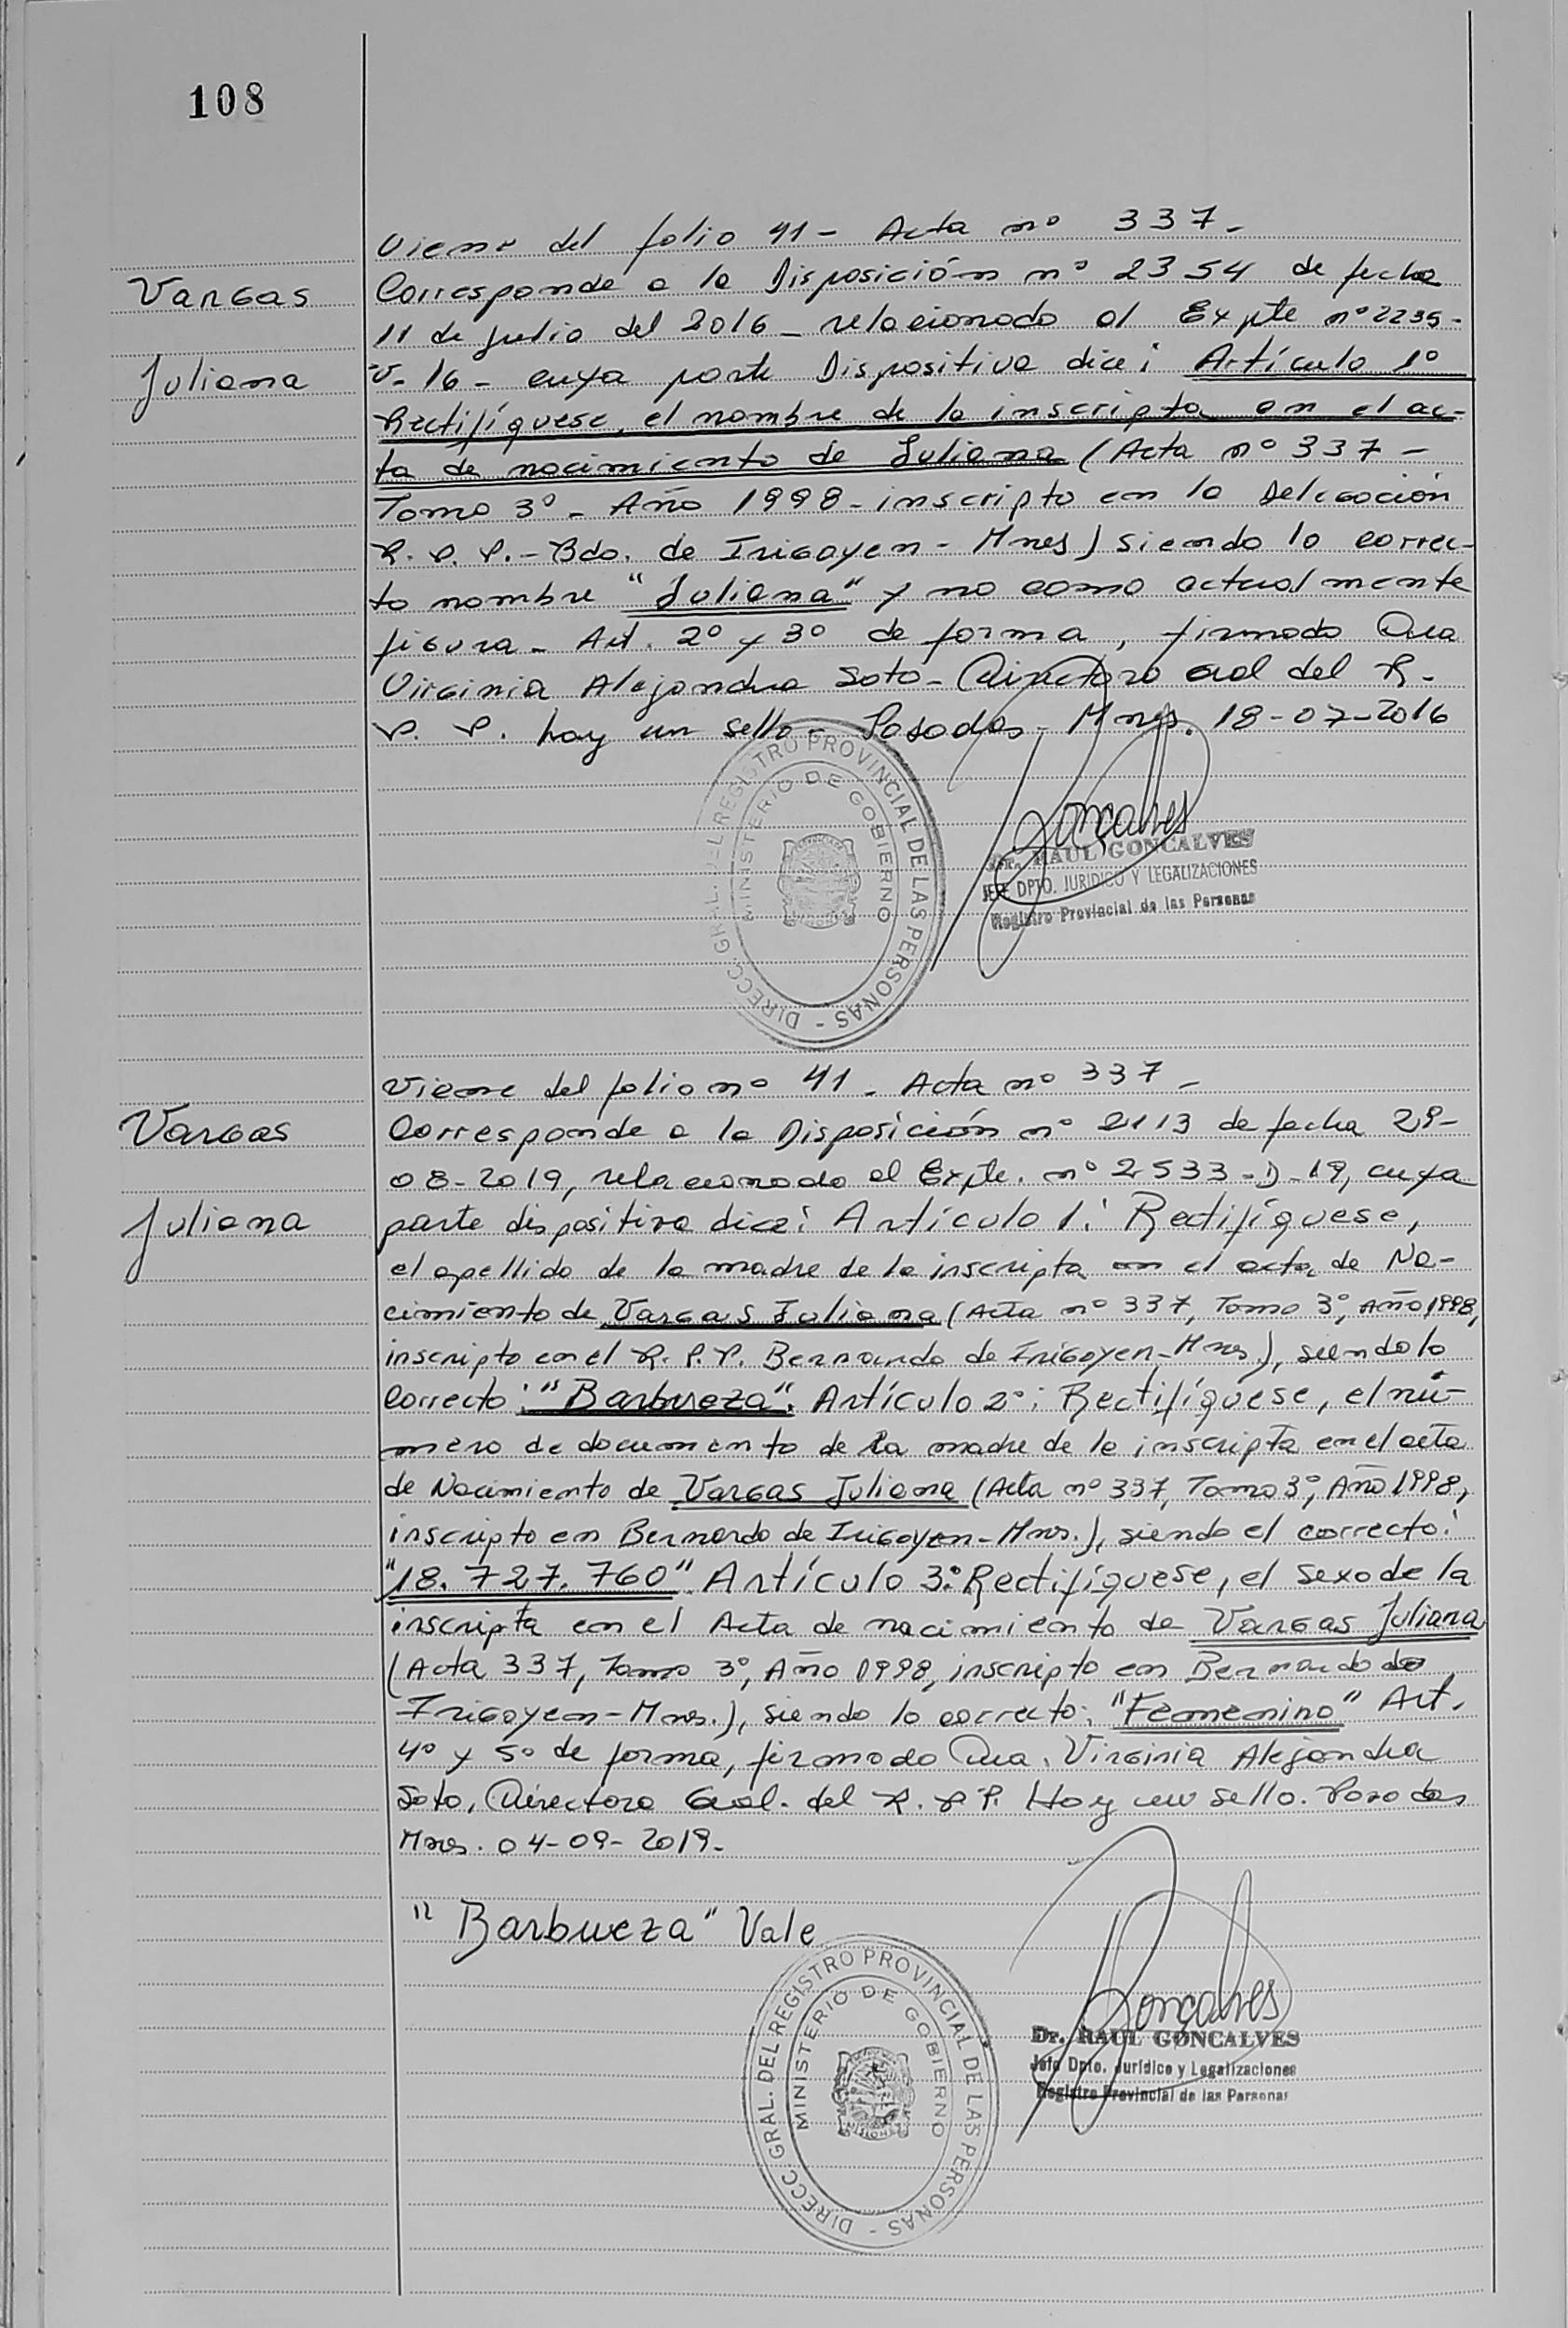 108
Viene del folio 41 - Acta nº 337.-
Vargas
Corresponde a la Disposición nº 2354 de fecha
11 de Julio del 2016 - relacionado al Expte nº 2235-
Juliana
V- 16 - cuya parte Dispositiva dice: Artículo 1º
Rectifíquese, el nombre de la inscripta en el ac-
ta de nacimiento de Juliana (Acta nº 337 -
Tomo 3º - Año 1998 - inscripto en la Delegación
R. P. P. - Bdo. de Irigoyen - Mnes) siendo lo correc-
to nombre "Juliana" y no como actualmente
figura - Art. 2º y 3º de forma, firmado Dra
Virginia Alejandra Soto - Directora Gral del R.
P. P. hay un sello - Posadas - Mnes. 18-07-2016
DIRECC. GRAL. DEL REGISTRO PROVINCIAL DE LAS PERSONAS -
MINISTERIO DE GOBIERNO
MISIONES
Gonçalves
Dr. RAUL GONCALVES
JEFE DPTO. JURIDICO Y LEGALIZACIONES
Registro Provincial de las Personas
Viene del folio nº 41 - Acta nº 337 -
Vargas
Corresponde a la Disposición nº 2113 de fecha 29-
08-2019, relacionado al Expte. nº 2533-D-19, cuya
Juliana
parte dispositiva dice: Artículo 1: Rectifíquese,
el apellido de la madre de la inscripta en el acta de Na-
cimiento de Vargas Juliana (Acta nº 337, Tomo 3º, Año 1998,
inscripto en el R.P.P. Bernardo de Irigoyen-Mnes.), siendo lo
correcto: "Barbueza". Artículo 2º: Rectifíquese, el nú-
mero de documento de la madre de la inscripta en el acta
de Nacimiento de Vargas Juliana (Acta nº 337, Tomo 3º, Año 1998,
inscripto en Bernardo de Irigoyen-Mnes.), siendo el correcto:
"18.727.760" Artículo 3º: Rectifíquese, el sexo de la
inscripta en el Acta de nacimiento de Vargas Juliana
(Acta 337, Tomo 3º, Año 1998, inscripto en Bernardo de
Irigoyen-Mnes.), siendo lo correcto: "Femenino" Art.
4º y 5º de forma, firmado Dra. Virginia Alejandra
Soto, Directora Gral. del R.P.P. Hay un sello. Posadas
Mnes. 04-09-2019.
"Barbueza" Vale
DIRECC. GRAL. DEL REGISTRO PROVINCIAL DE LAS PERSONAS -
MINISTERIO DE GOBIERNO
MISIONES
Gonçalves
Dr. RAUL GONCALVES
Jefe Dpto. Jurídico y Legalizaciones
Registro Provincial de las Personas